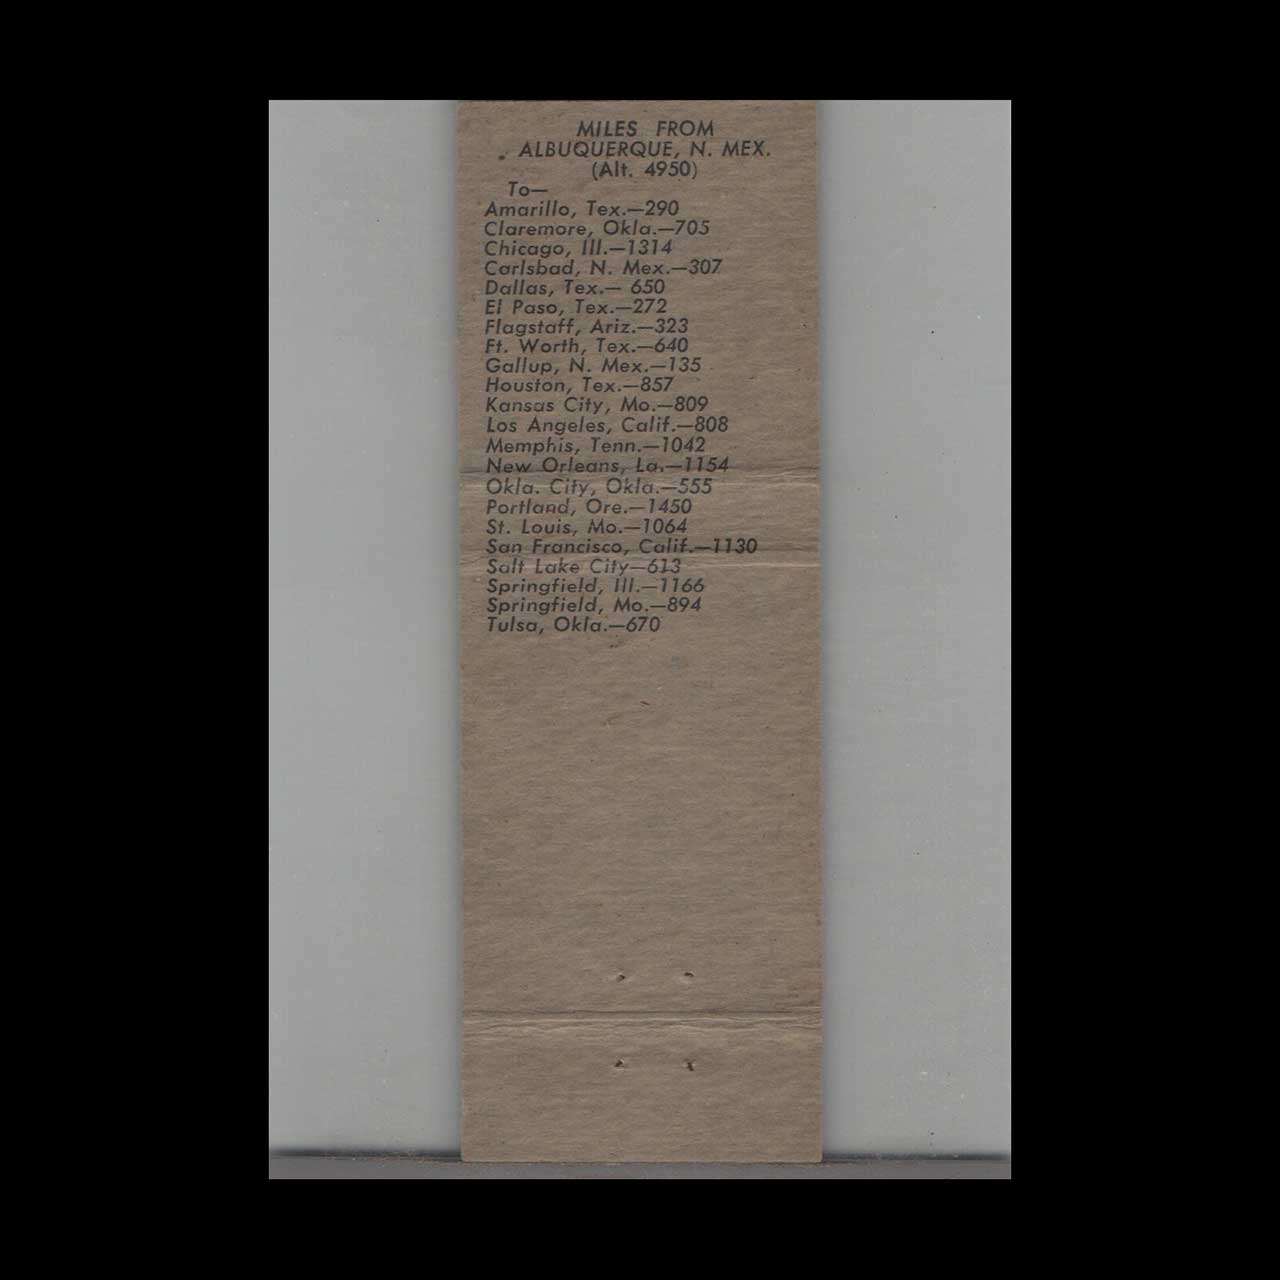 MILES FROM
ALBUQUERQUE, N. MEX.
(Alt. 4950)
To—
Amarillo, Tex.—290
Claremore, Okla.—705
Chicago, Ill.—1314
Carlsbad, N. Mex.—307
Dallas, Tex.— 650
El Paso, Tex.—272
Flagstaff, Ariz.—323
Ft. Worth, Tex.—640
Gallup, N. Mex.—135
Houston, Tex.—857
Kansas City, Mo.—809
Los Angeles, Calif.—808
Memphis, Tenn.—1042
New Orleans, La.—1154
Okla. City, Okla.—555
Portland, Ore.—1450
St. Louis, Mo.—1064
San Francisco, Calif.—1130
Salt Lake City—613
Springfield, Ill.—1166
Springfield, Mo.—894
Tulsa, Okla.—670